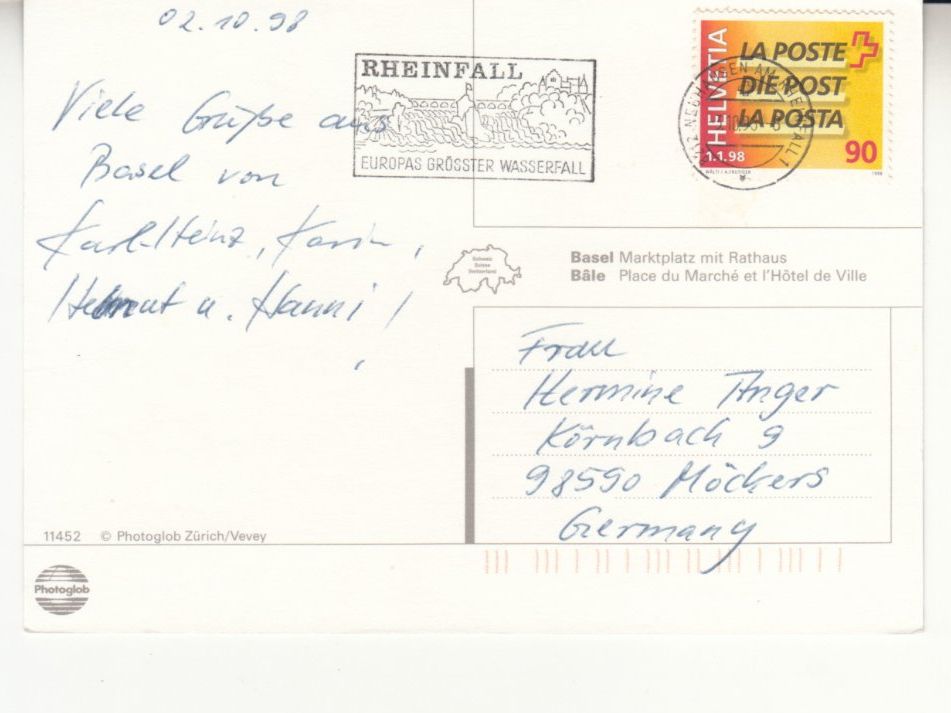 02.10.98
Viele Grüße aus
Basel von
Karl-Heinz, Karin,
Helmut u. Hanni!
RHEINFALL
EUROPAS GRÖSSTER WASSERFALL
HELVETIA
LA POSTE
DIE POST
LA POSTA
1.1.98
90
Schweiz
Suisse
Switzerland
Basel Marktplatz mit Rathaus
Bâle Place du Marché et l'Hôtel de Ville
Frau
Hermine Anger
Körnbach 9
98590 Möckers
Germany
11452 © Photoglob Zürich/Vevey
Photoglob